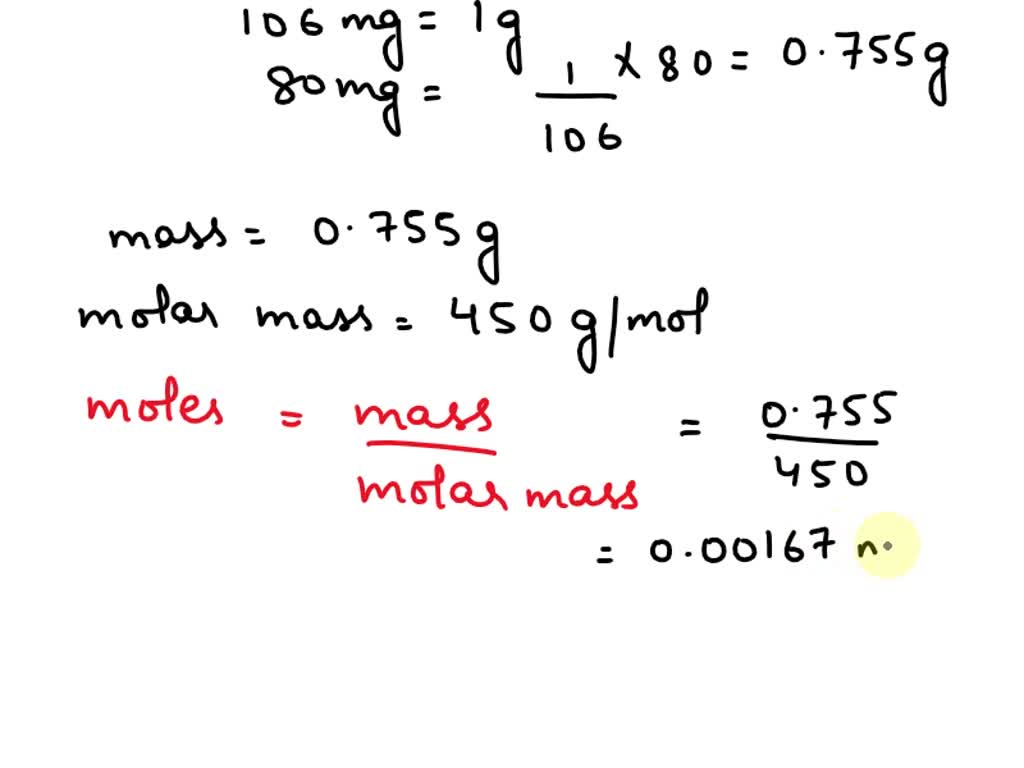 106 mg = 1g
80mg = 1/106 × 80 = 0.755g
mass = 0.755g
molar mass = 450g/mol
moles = mass/molar mass = 0.755/450
= 0.00167